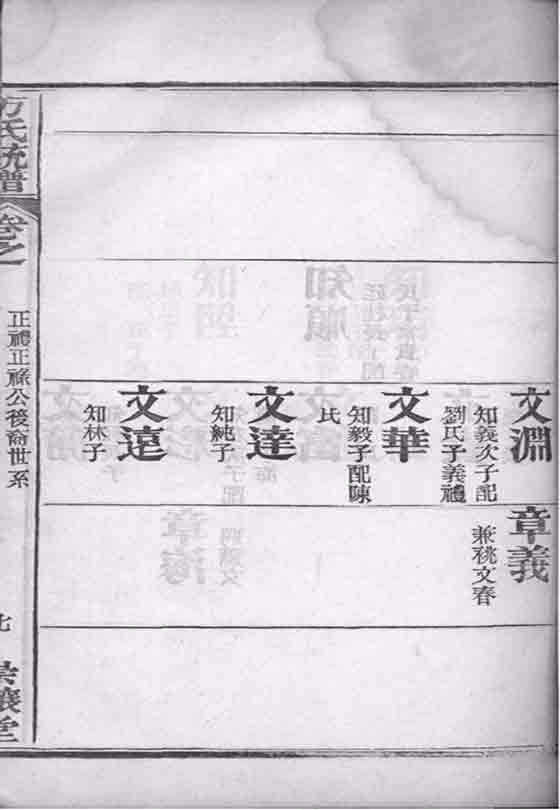 文淵
知義次子配
劉氏子義禮
文華
知毅子配陳
氏
文達
知純子
文遠
知林子
章義
兼祧文春
方氏統譜
卷之
正禮正祿公後裔世系
七